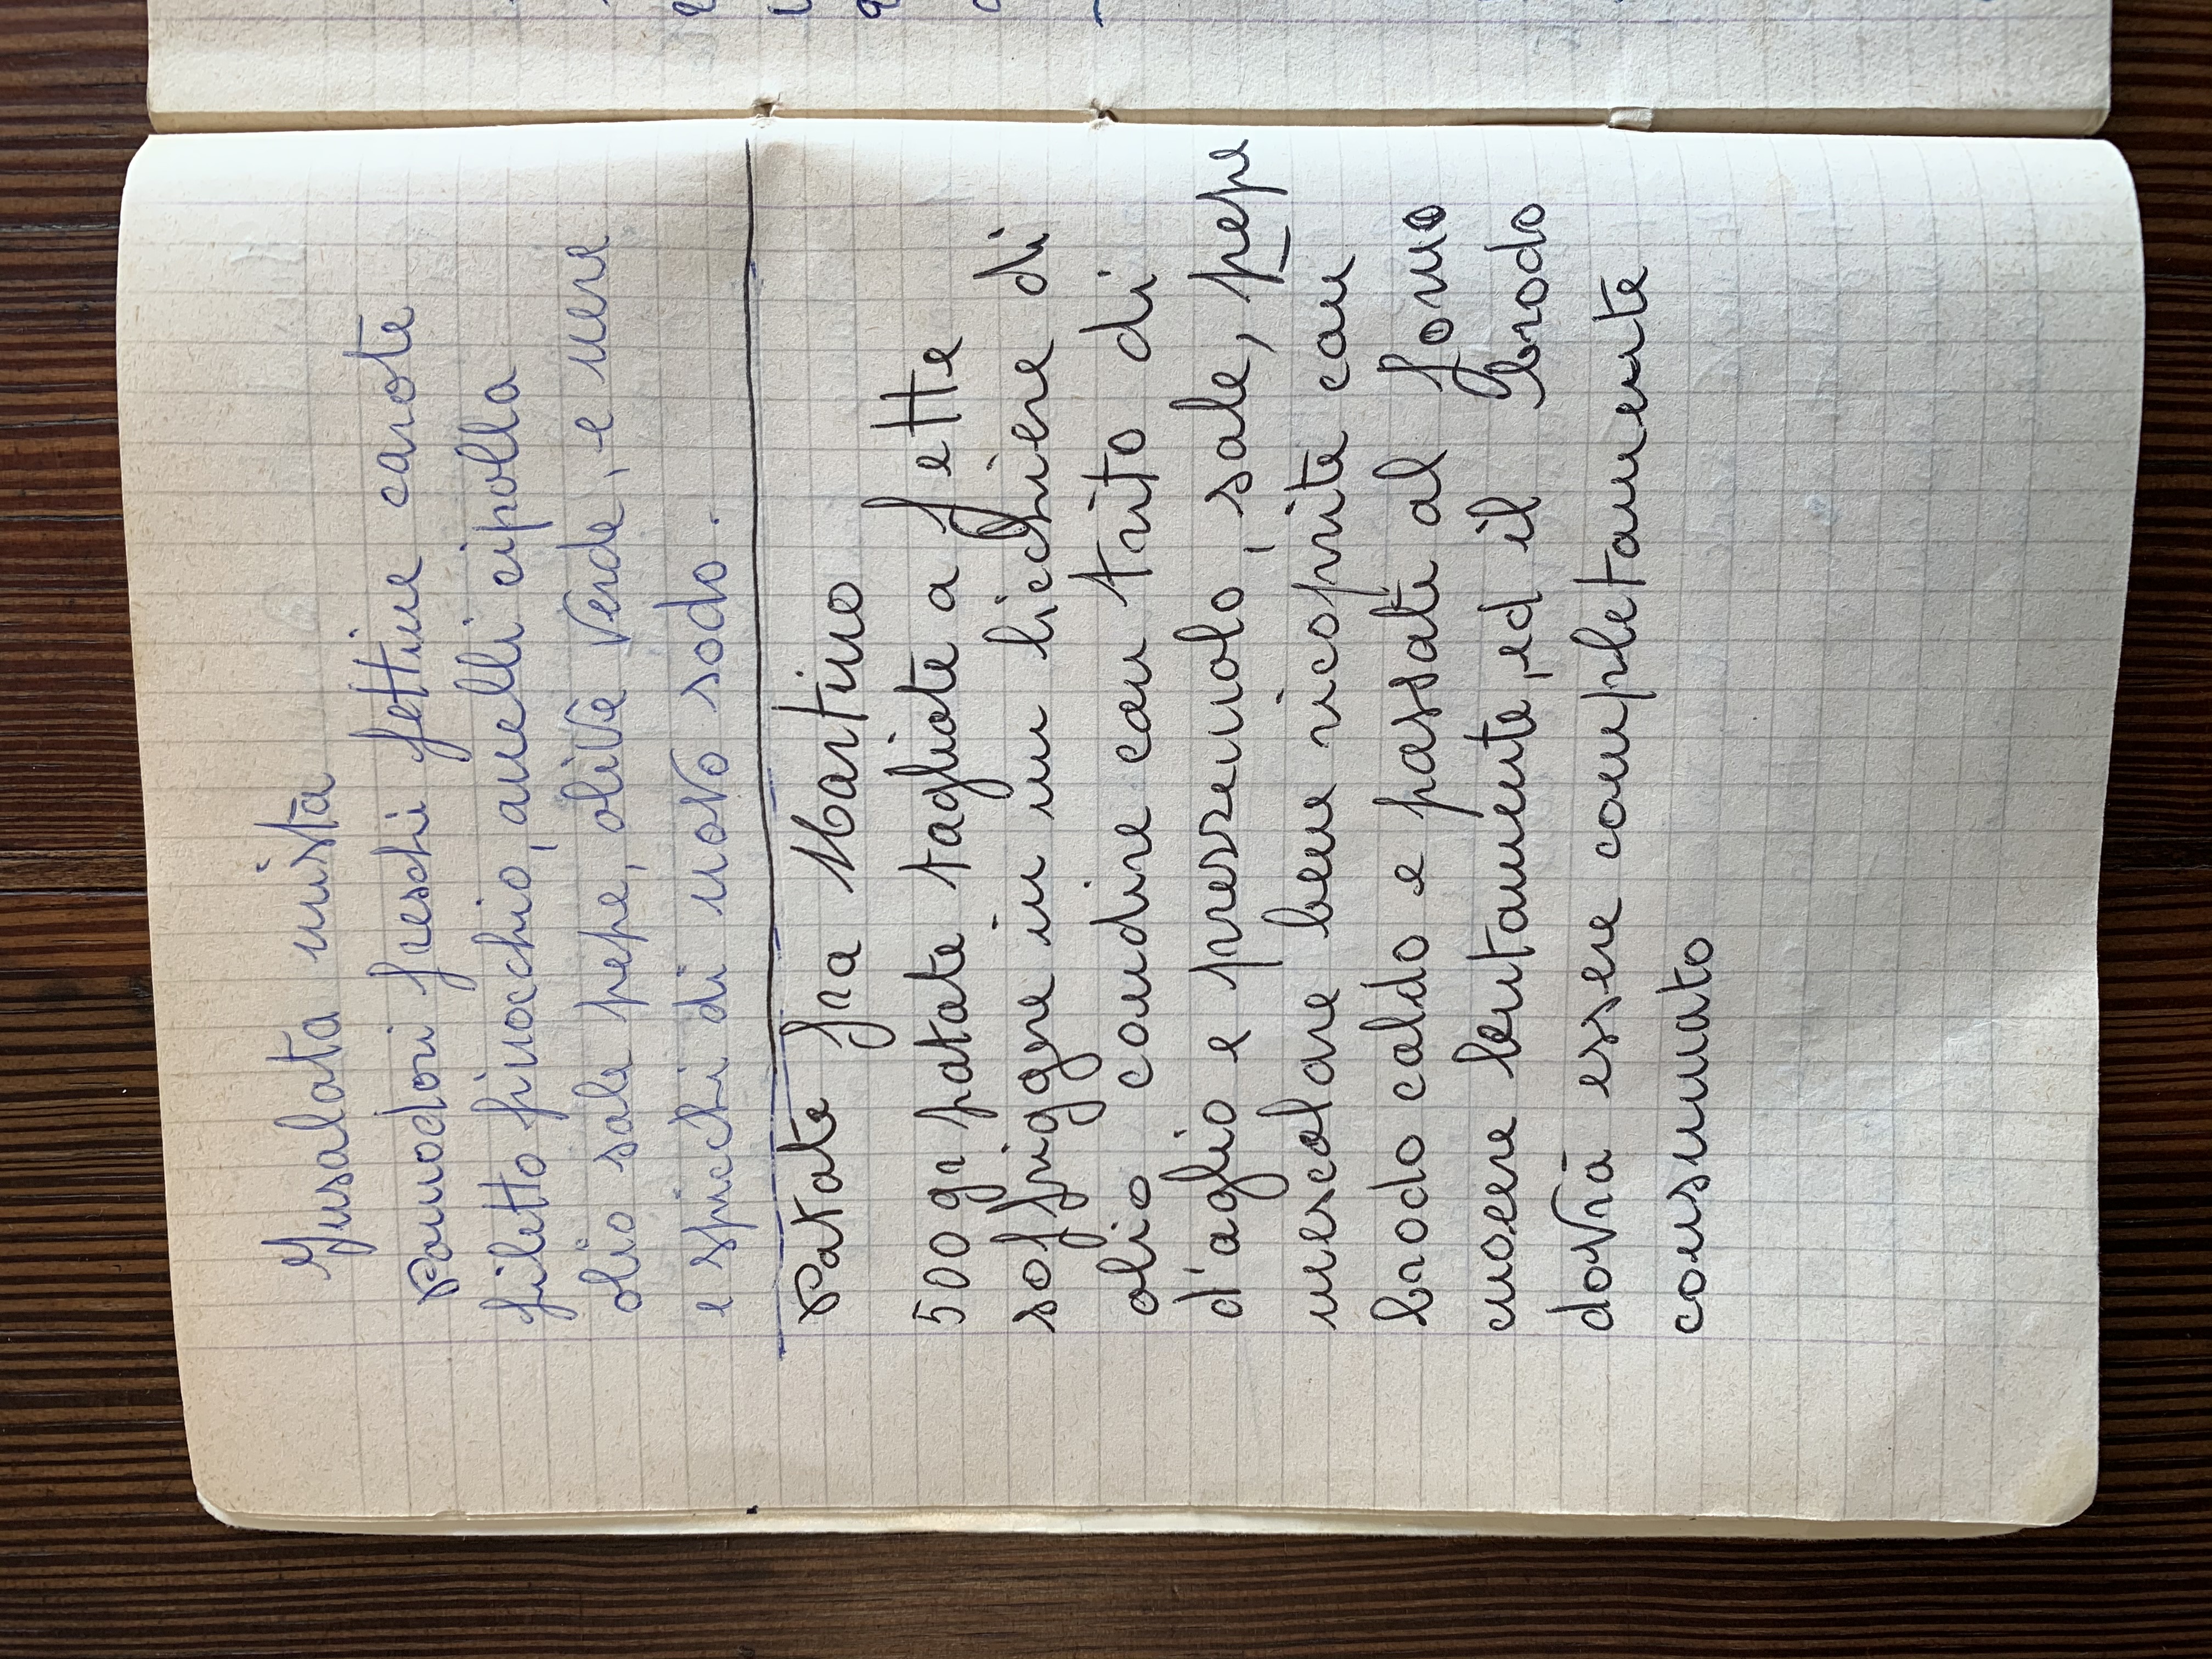 Insalata mista
Pomodori freschi fettine carote
filetto finocchio, anelli cipolla
olio sale pepe, olive verde, e nere
e spicchi di uovo sodo.
Patate fra Martino
500 gr patate tagliate a fette
soffriggere in un bicchiere di
olio condire con trito di
d'aglio e prezzemolo, sale, pepe
mescolare bene ricoprite con
brodo caldo e passate al forno
cuocere lentamente, ed il brodo
dovrà essere completamente
consumato